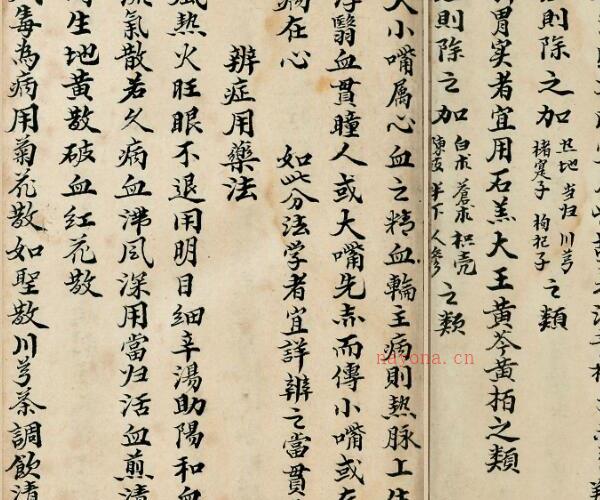 則除之加 生地 当归 川芎 枸杞子 之類
胃実者宜用石羔大王黄芩黄柏之類
則除之加 白朮 蒼朮 枳壳 陳皮 半下 人参 之類
大小嘴属心血之精血輪主病則热脉上生
浮翳血貫瞳人或大嘴先赤而傳小嘴或在
在心 如此分法学者宜詳辨之當貫
辨症用藥法
風熱火旺眼不退用明目細辛湯助陽和血
流氣散若久病血滞風深用當归活血煎清
生地黄散破血紅花散
毒為病用菊花散如聖散川芎茶調飲清
nayona.cn